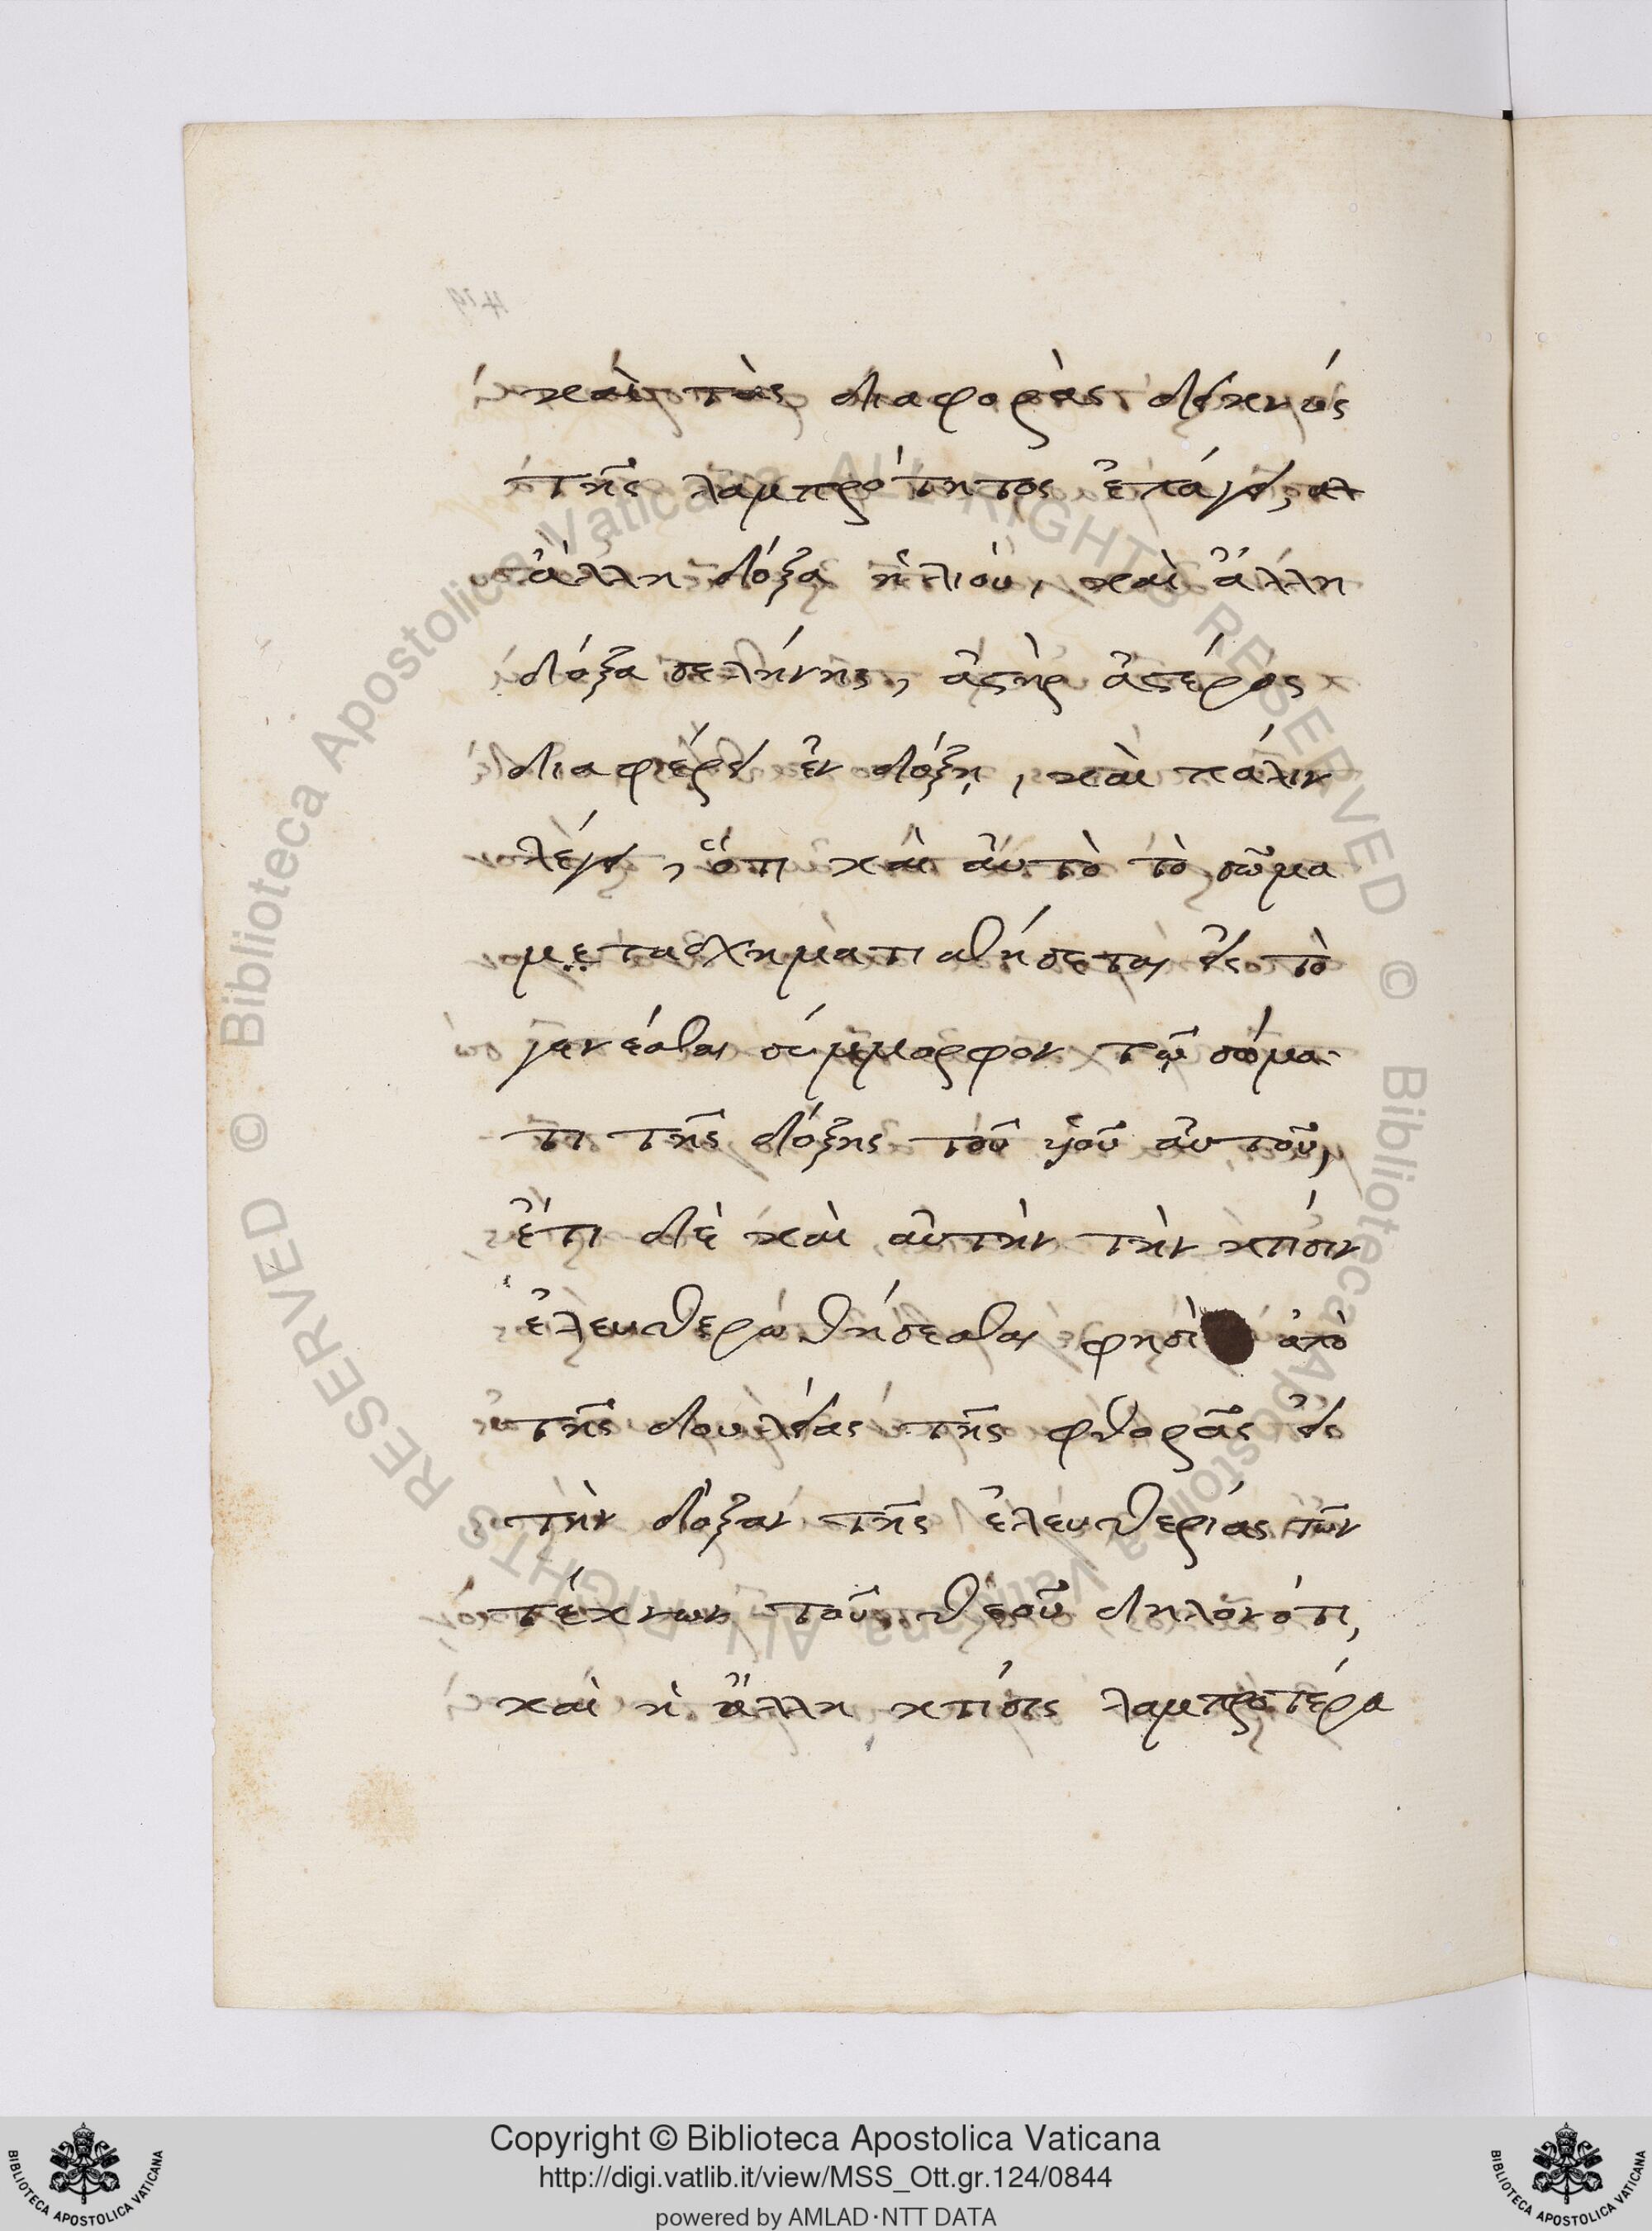 καὶ τὰς διαφορὰς δεικνὺς
τῆς λαμπρότητος ἐπάγει,
ἄλλη δόξα ἡλίου, καὶ ἄλλη
δόξα σελήνης, ἀστὴρ ἀστέρος
διαφέρει ἐν δόξῃ, καὶ πάλιν
λέγει, ὅτι καὶ αὐτὸ τὸ σῶμα
μετασχηματισθήσεται εἰς τὸ
γενέσθαι σύμμορφον τῷ σώμα
τι τῆς δόξης τοῦ ὑιοῦ αὐτοῦ,
ἔτι δὲ καὶ αὐτὴν τὴν κτίσιν
ἐλευθερωθήσεσθαι φησὶ ἀπὸ
τῆς δουλείας τῆς φθορᾶς εἰς
τὴν δόξαν τῆς ἐλευθερίας τῶν
τέκνων τοῦ θεοῦ δηλονότι,
καὶ ἡ ἄλλη κτίσις λαμπροτέρα
© Biblioteca Apostolica Vaticana ALL RIGHTS RESERVED © Biblioteca Apostolica Vaticana ALL RIGHTS RESERVED
Copyright © Biblioteca Apostolica Vaticana
http://digi.vatlib.it/view/MSS_Ott.gr.124/0844
powered by AMLAD·NTT DATA
BIBLIOTECA APOSTOLICA VATICANA
BIBLIOTECA APOSTOLICA VATICANA